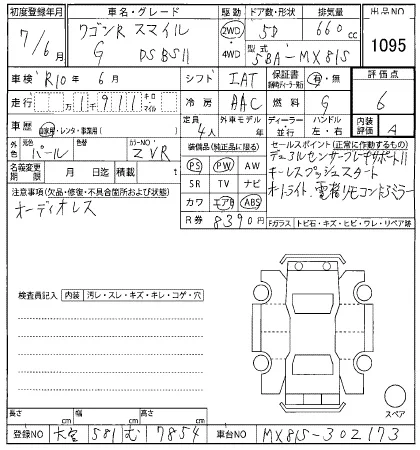 初度登録年月 車名・グレード 駆動 ドア数・形状 排気量 出品NO
7/6月 ワゴンR スマイル G DSBSⅡ 2WD 4WD 5D 660cc 1095
型式 5BA-MX81S
車検 R10年 6月 シフト IAT 保証書 有・無 評価点
走行 万 1911 キロ マイル 冷房 AAC 燃料 G 6
車歴 自家用・レンタ・事業用( ) 定員 4人 外車モデル 年 ディーラー・並行 ハンドル 左・右 内装評価 A
外色 元色 パール 色替 カラーNO ZVR 装備品(純正品に限る) セールスポイント(正常に作動するもの)
名義変更期限 月 日迄 積載 t PS PW AW デュアルセンサーブレーキサポートⅡ
注意事項(欠品・修復・不具合箇所および状態) SR TV ナビ キーレスプッシュスタート
オーディオレス カワ エアB ABS オートライト 電格リモコンドアミラー
R券 8390円 Fガラス トビ石・キズ・ヒビ・ワレ・リペア跡
検査員記入 内装 汚レ・スレ・キズ・キレ・コゲ・穴
スペア
長さ cm 幅 cm 高さ cm
登録NO 大宮 581 む 7854 車台NO MX81S-302173